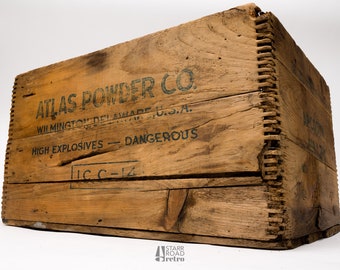 ATLAS POWDER CO.
WILMINGTON, DELAWARE, U.S.A.
HIGH EXPLOSIVES — DANGEROUS
I C C - 14
STARR
ROAD
retro